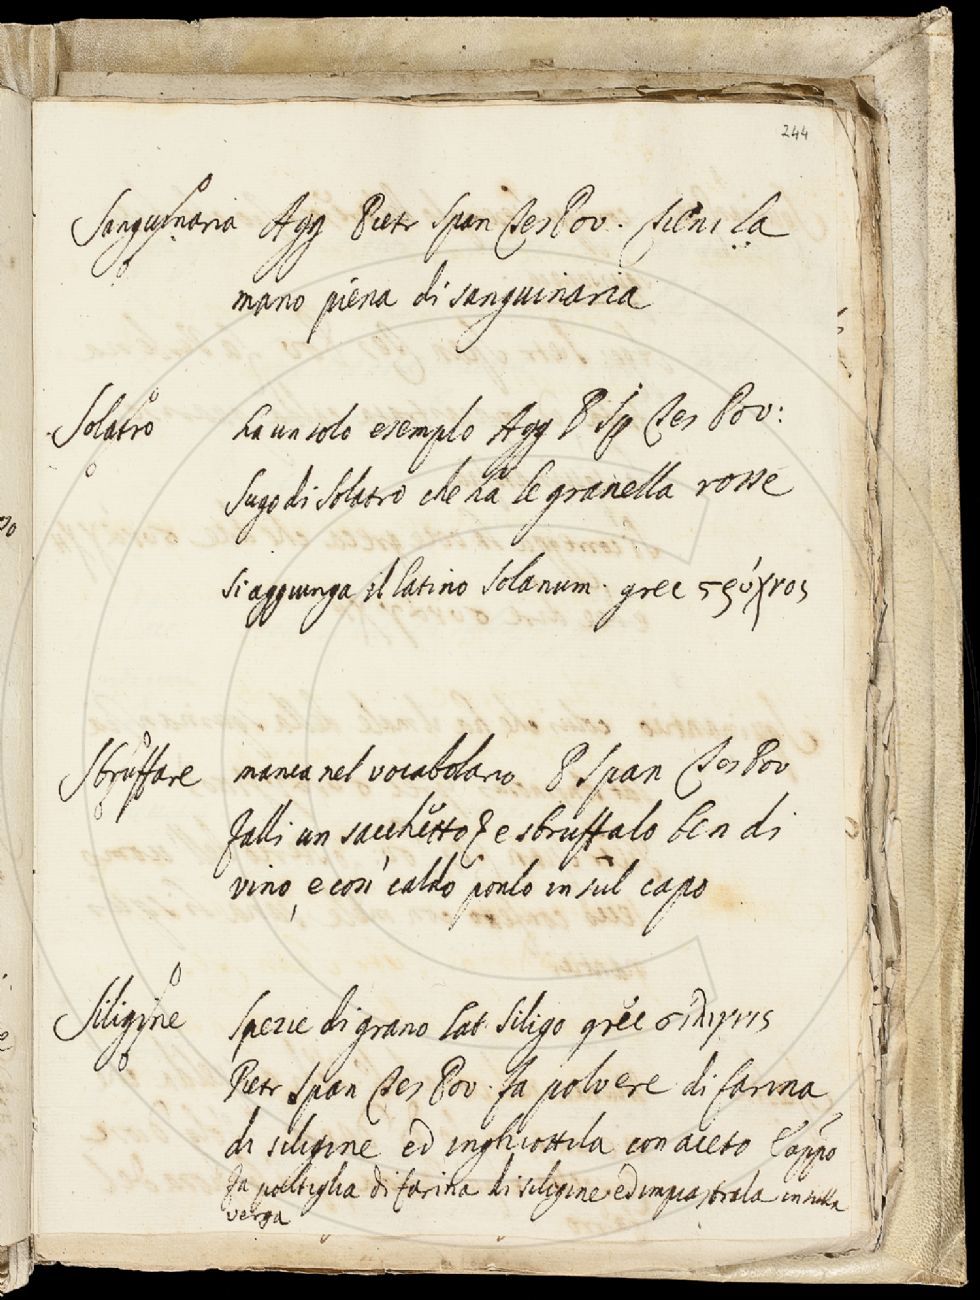 244
Sanguinaria Agg Pietr Span Tes Pov. tieni la
mano piena di sanguinaria
Solatro ha un solo esemplo Agg P Sp Tes Pov:
Sugo di Solatro che hà le granella rosse
Si aggiunga il latino Solanum. grec
Sbruffare manca nel vocabolario. P Span Tes Pov
falli un sacchetto e sbruffalo ben di
vino, e così caldo ponlo in sul capo
Siligine Spezie di grano Lat. Siligo grec σίλιγνις
Pietr Span Tes Pov. fa polvere di farina
di siligine ed inghiottila con aceto E appo
fa poltiglia di farina di siligine ed impiastrala in sulla
verga